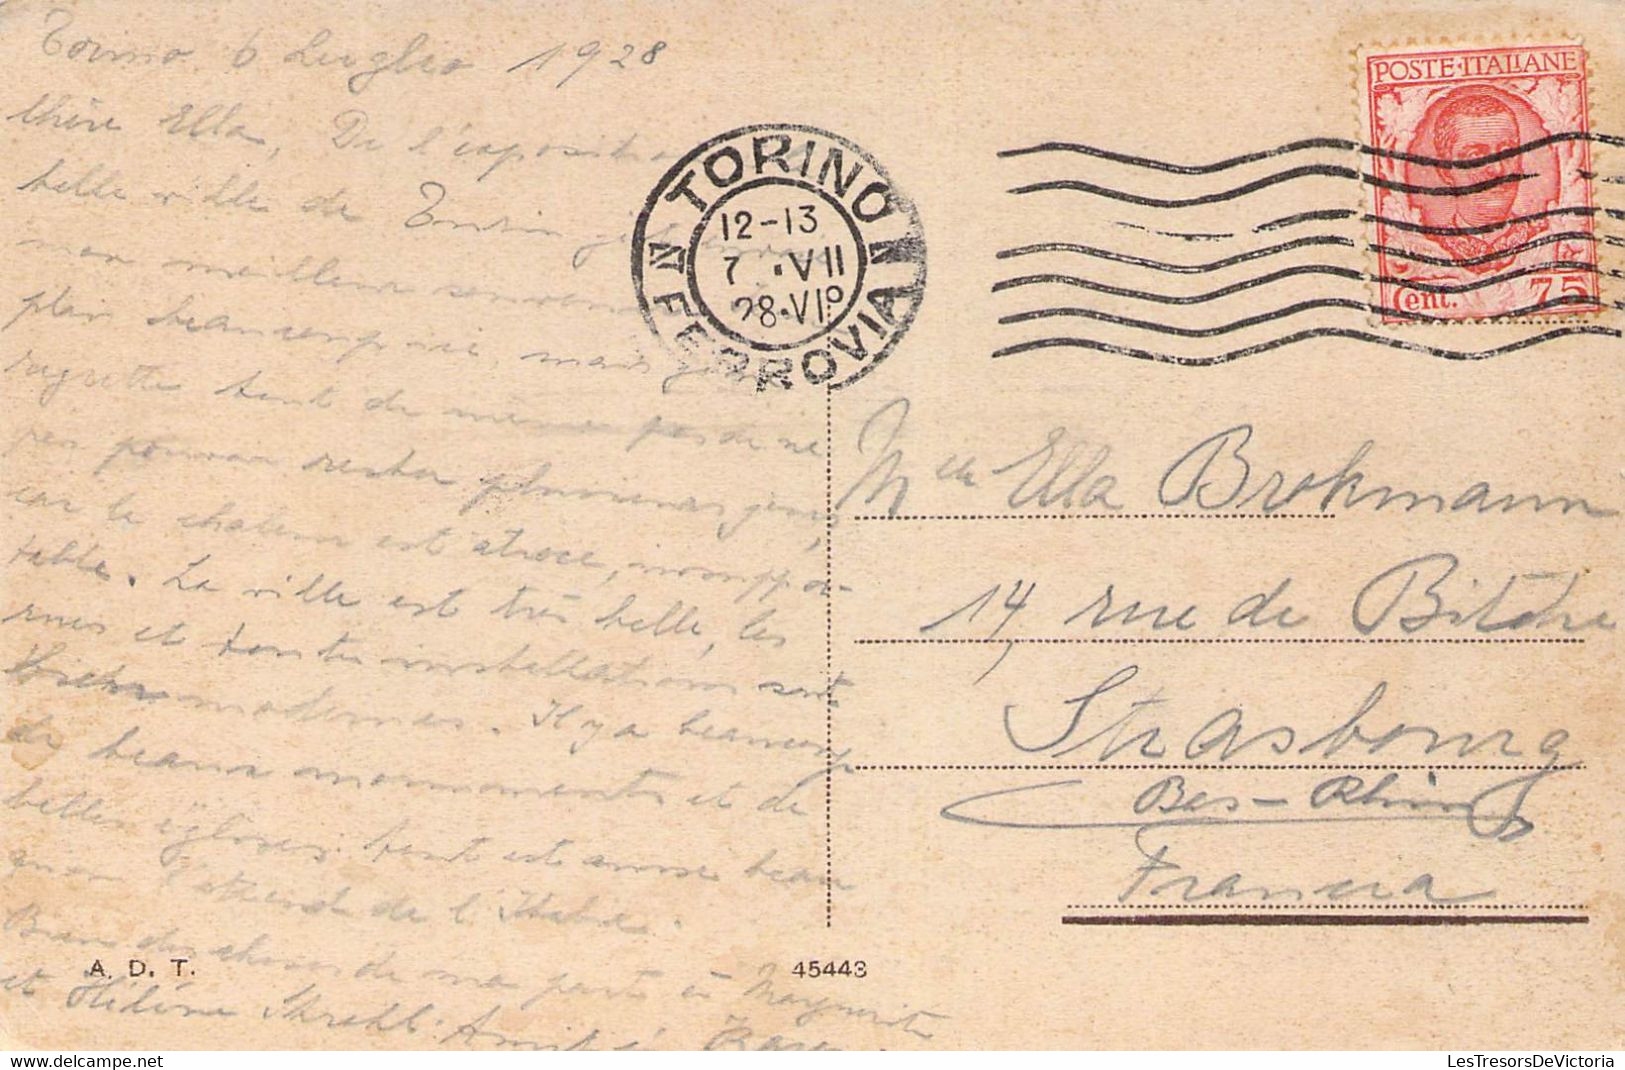 Torino 6 Luglio 1928
Chère Ella, De l'exposition
belle ville de Turin je
meilleurs souvenirs
plait beaucoup ici, mais je
regrette tout de même pas de ne
pas pouvoir rester plusieurs jours,
car la chaleur est atroce, insuppor-
table. La ville est très belle, les
rues et toutes installations sont
modernes. Il y a beaucoup
de beaux monuments et de
belles églises. Tout est aussi beau
de l'Italie.
Bien des choses de ma part à Marguerite
et Hélène Strehl. Amitiés
POSTE·ITALIANE
Cent. 75
TORINO
12-13
7 ·VII
28·VIº
FERROVIA
Melle Ella Brokmann
14, rue de Bitche
Strasbourg
Bas-Rhin
Francia
A. D. T.
45443
delcampe.net
LesTresorsDeVictoria